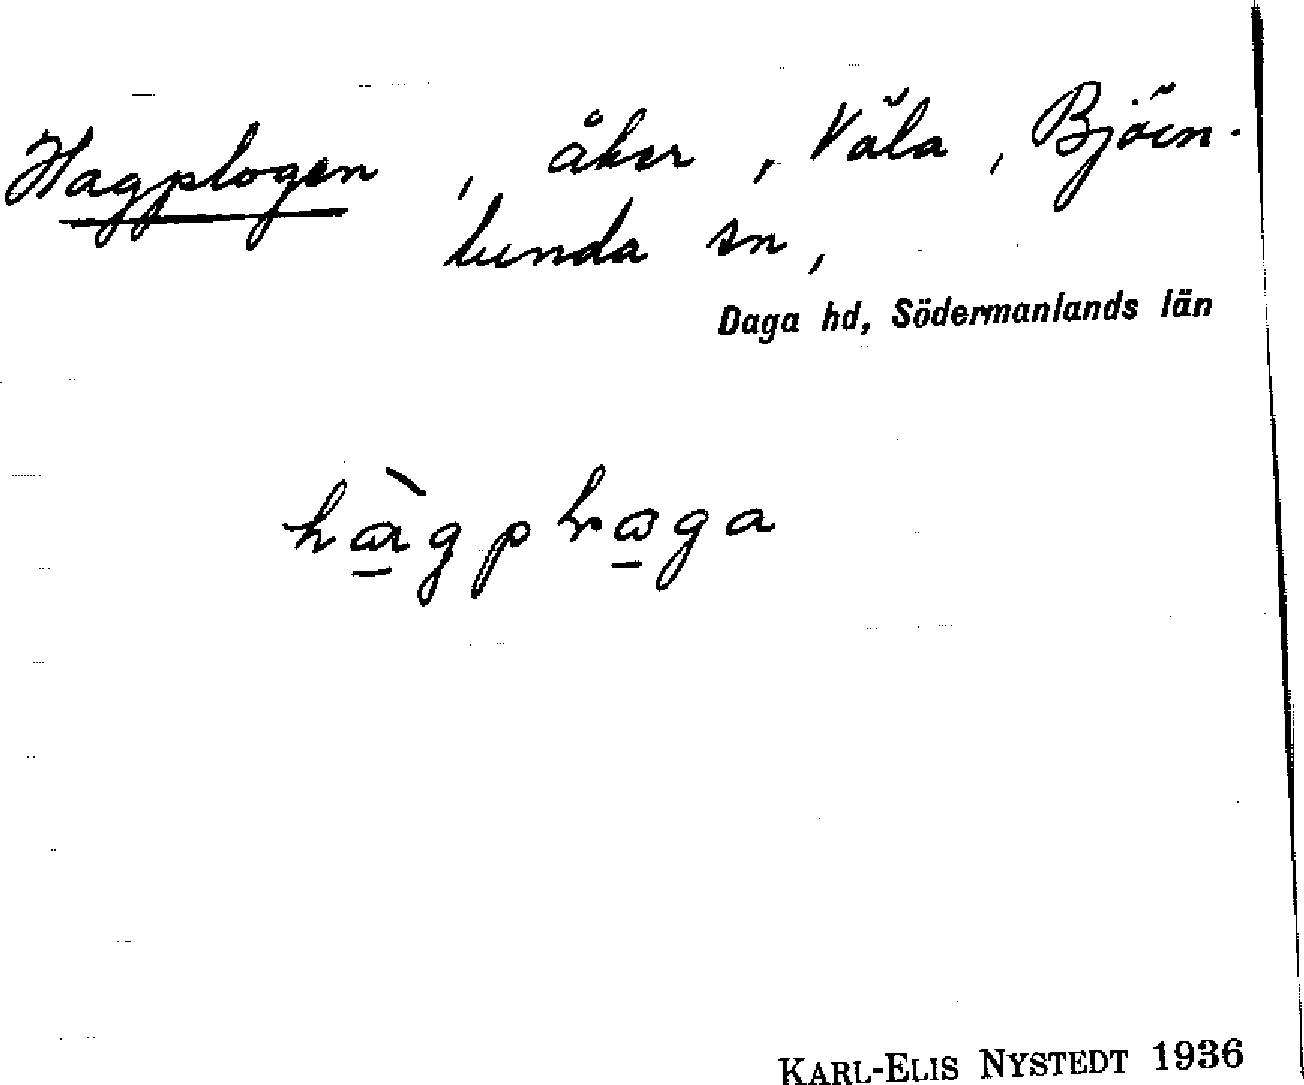 Hagplogen, åker, Väla, Björn-
lunda sn,
Daga hd, Södermanlands län
KARL-ELIS NYSTEDT 1936